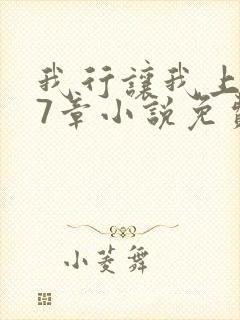 我行讓我上
7章小說免費
小菱舞